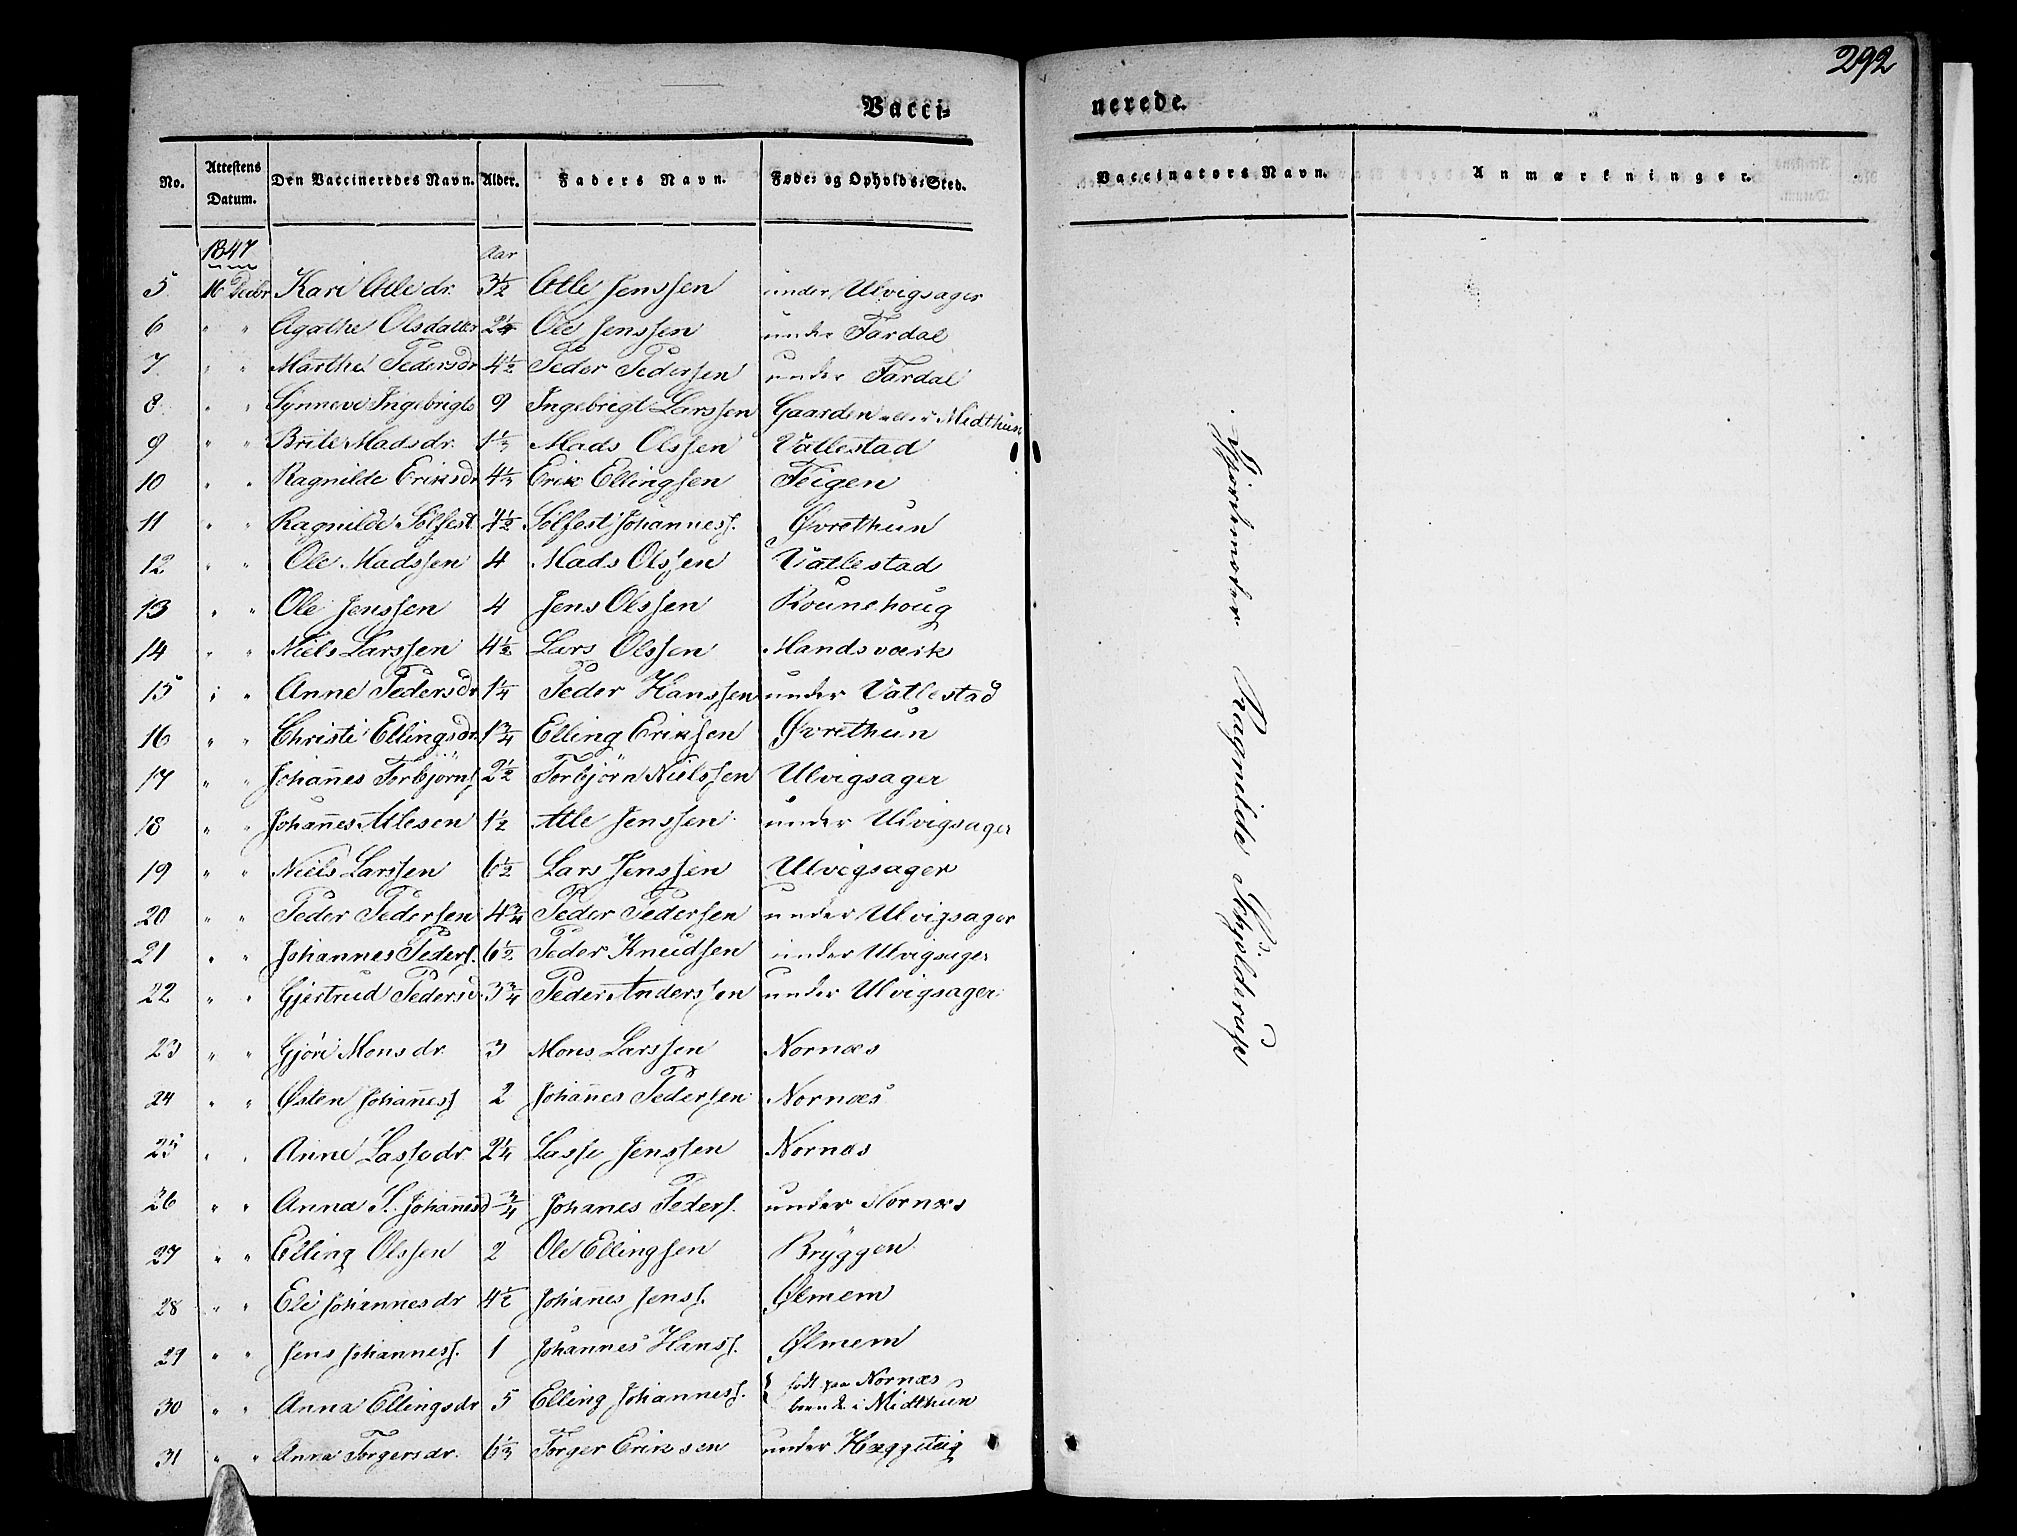 292
Vacci-
nerede.
No. Attestens Datum. Den Vaccineredes Navn. Alder. Faders Navn. Føde- og Opholds-Sted.
Vaccinators Navn. Anmærkninger.
1847 Aar
5 16 Decbr Kari Atledr. 3½ Atle Jenssen under Ulvigsager
6 " " Agathe Olsdatter 2¼ Ole Jenssen under Fardal
7 " " Marthe Pedersdr 4½ Peder Pedersen under Fardal
8 " " Synneve Ingebrigts 9 Ingebrigt Larssen Gaarden Midthun
9 " " Brite Madsdr. 1⅓ Mads Olssen Vatlestad
10 " " Ragnilde Eriksdr 4⅓ Erik Ellingsen Teigen
11 " " Ragnilde Solfest. 4½ Solfest Johannesf. Øvrethun
12 " " Ole Madssen 4 Mads Olssen Vatlestad
13 " " Ole Jenssen 4 Jens Olssen Kounehoug
14 " " Niels Larssen 4½ Lars Olssen Mandsværk
15 " " Anne Pedersdr 1¼ Peder Hanssen under Vatlestad
16 " " Christi Ellingsdr. 1¾ Elling Eriksen Øvrethun
17 " " Johan̄es Torbjörnf 2½ Torbjörn Nielssen Ulvigsager
18 " " Johan̄es Atlesen 1½ Atle Jenssen under Ulvigsager
19 " " Niels Larssen 6½ Lars Jenssen Ulvigsager
20 " " Peder Pedersen 4¾ Peder Pedersen under Ulvigsager
21 " " Johannes Pedersf. 6½ Peder Knudsen under Ulvigsager
22 " " Gjertrud Pedersd. 3¾ Peder Anderssen under Ulvigsager
23 " " Gjöri Monsdr. 3 Mons Larssen Nornæs
24 " " Østen Johan̄esf 2 Johan̄es Pedersen Nornæs
25 " " Anne Lassedr. 2¼ Lasse Jenssen Nornæs
26 " " Anna S. Johan̄esd ¾ Johanes Pedersf. under Nornæs
27 " " Elling Olssen 2 Ole Ellingsen Bryggen
28 " " Eli Johannesdr 4½ Johan̄es Jensf. Ølmem
29 " " Jens Johannesf. 1 Johannes Hansf. Ølmem
30 " " Anna Ellingsdr 5 Elling Johannesf. { født paa Nornæs
boende i Midthun
31 " " Anna Torgersdr. 6⅓ Torger Eriksen under Hæggeteig
Gjordemoder Ragnilde Schjölderup